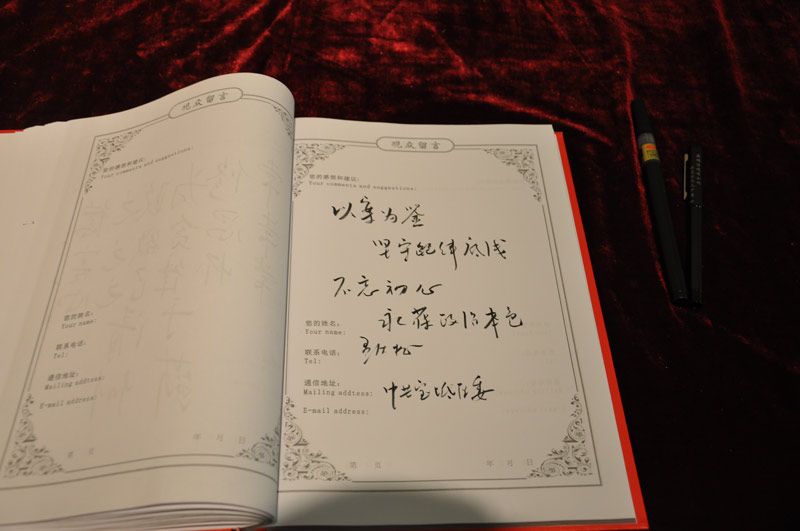 观众留言
您的感想和建议:
Your comments and suggestions:
您的姓名:
Your name:
联系电话:
Tel:
通信地址:
Mailing addtess:
E-mail address:
第 页
年 月 日
观众留言
您的感想和建议:
Your comments and suggestions:
以案为鉴
坚守纪律底线
不忘初心
永葆政治本色
您的姓名:
Your name:
联系电话:
Tel:
通信地址:
Mailing addtess:
中共宝坻区委
E-mail address:
第 页
年 月 日